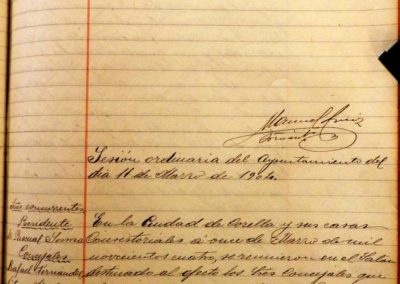 Manuel
Sesión ordinaria del Ayuntamiento del
día 11 de Marzo de 1904.
Sres concurrentes
Presidente
D. Pascual
Concejales
Rafael Fernandez
En la Ciudad de Corella y sus casas
Consistoriales á once de Marzo de mil
novecientos cuatro, se reunieron en el Salon
destinado al efecto los Sres Concejales que